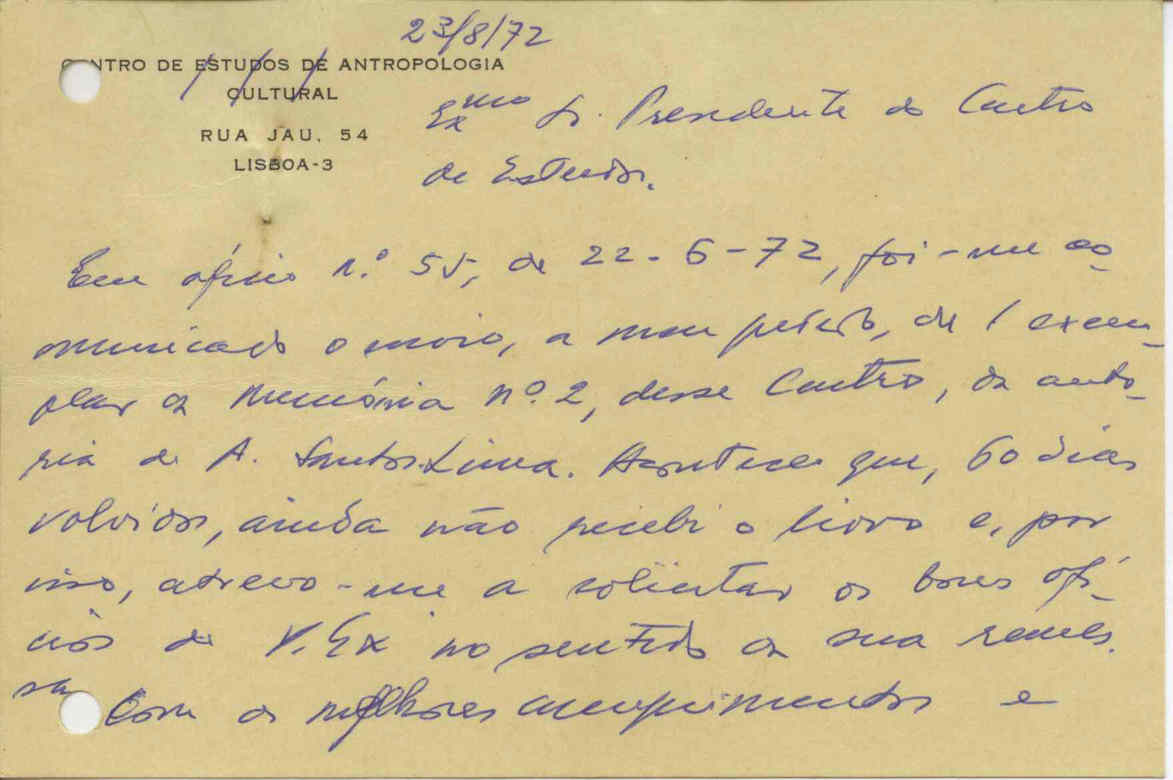 23/8/72
CENTRO DE ESTUDOS DE ANTROPOLOGIA
CULTURAL
RUA JAU, 54
LISBOA-3
Exmo Sr. Presidente do Centro
de Estudos.
Em ofício n.º 55, de 22-6-72, foi-me co-
municado o envio, a meu pedido, de 1 exem-
plar da Memória nº. 2, desse Centro, da auto-
ria de A. Santos Lima. Acontece que, 60 dias
volvidos, ainda não recebi o livro e, por
isso, atrevo-me a solicitar os bons ofí-
cios de V. Ex no sentido da sua remes-
sa
Com os melhores cumprimentos e